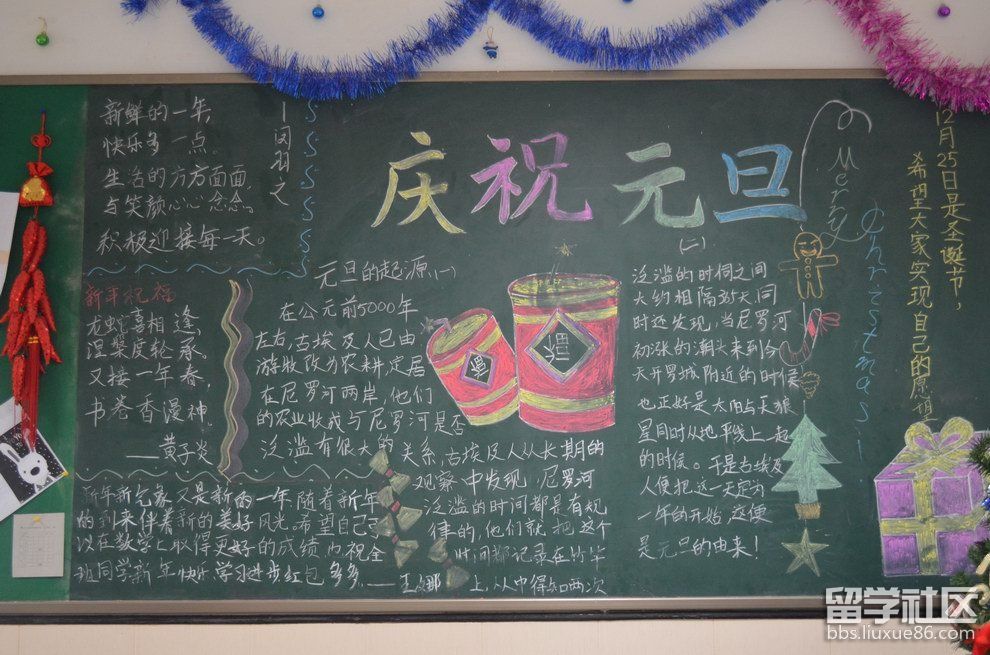 新鲜的一年,
快乐多一点。
生活的方方面面,
与笑颜心心念念,
积极迎接每一天。
—闵羽之
新年祝福
龙蛇喜相逢,
涅槃度轮承,
又接一年春,
书卷香漫神.
——黄子炎
新年新气象 又是新的一年 随着新年
的到来伴着新的美好风光.希望自己可
以在数学上取得更好的成绩 祝全
班同学新年快乐,学习进步红包多多.——王
庆祝元旦
元旦的起源(一)
在公元前5000年
左右,古埃及人已由
游牧改为农耕并定居
在尼罗河两岸,他们
的农业收成与尼罗河是否
泛滥有很大的关系,古埃及人从长期的
观察中发现,尼罗河
泛滥的时间都是有规
律的,他们就把这个
时间都记录在竹竿
上,从中得知两次
(二)
泛滥的时间之间
大约相隔365天同
时还发现,当尼罗河
初涨的潮头来到今
天开罗城附近的时候
也正好是太阳与天狼
星同时从地平线上一起
的时候。于是古埃及
人便把这一天定为
一年的开始 这便
是元旦的由来!
Merry
Christmas!
12月25日是圣诞节,
希望大家实现自己的愿望
福
福
留学社区
bbs.liuxue86.com